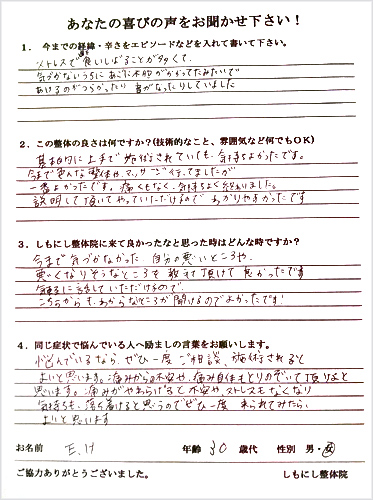 あなたの喜びの声をお聞かせ下さい！
１．今までの経緯・辛さをエピソードなどを入れて書いて下さい。
ストレスで食いしばることが多くて、
気づかないうちにあごに負担がかかってたみたいで
あけるのがつらかったり 音がなったりしていました
２．この整体の良さは何ですか？(技術的なこと、雰囲気など何でもＯＫ)
基本的に上手で 施術されていても 気持ちよかったです。
今まで色んな整体や、マッサージ行ってましたが
一番よかったです。痛くもなく、気持ちよく終わりました。
説明して頂いてやっていただけるので わかりやすかったです
３．しもにし整体院に来て良かったなと思った時はどんな時ですか？
今まで気づかなかった、自分の悪いところや、
悪くなりそうなところを 教えて頂けて 良かったです
気軽に話していただけるので、
こちらからも、わからないところが聞けるのでよかったです！
４．同じ症状で悩んでいる人へ励ましの言葉をお願いします。
悩んでいるなら、ぜひ一度 ご相談、施術されると
よいと思います。痛みからの不安や、痛み自体もとりのぞいて頂けると
思います。痛みがやわらげると 不安や、ストレスもなくなり
気持ちも、落ち着けると思うのでぜひ一度 来られてみたら、
よいと思います
お名前 E.H 年齢 30 歳代 性別 男・女
ご協力ありがとうございました。 しもにし整体院